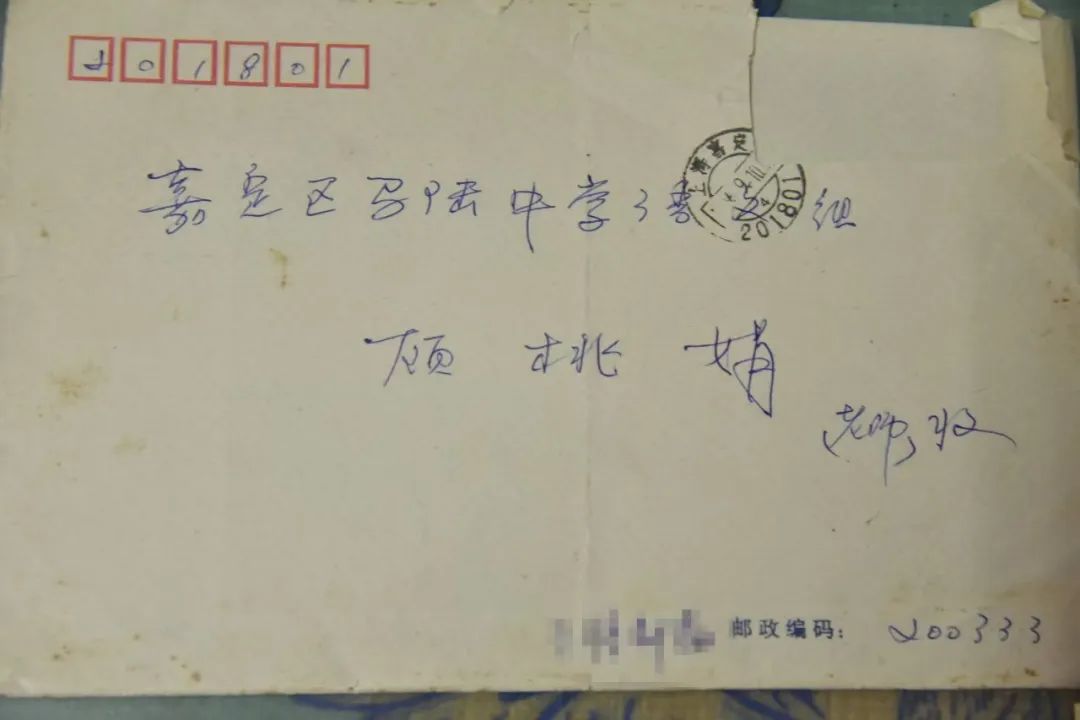 201801
嘉定区马陆中学语文组
上海嘉定
9.10
201801
顾桃娟
老师收
邮政编码: 200333